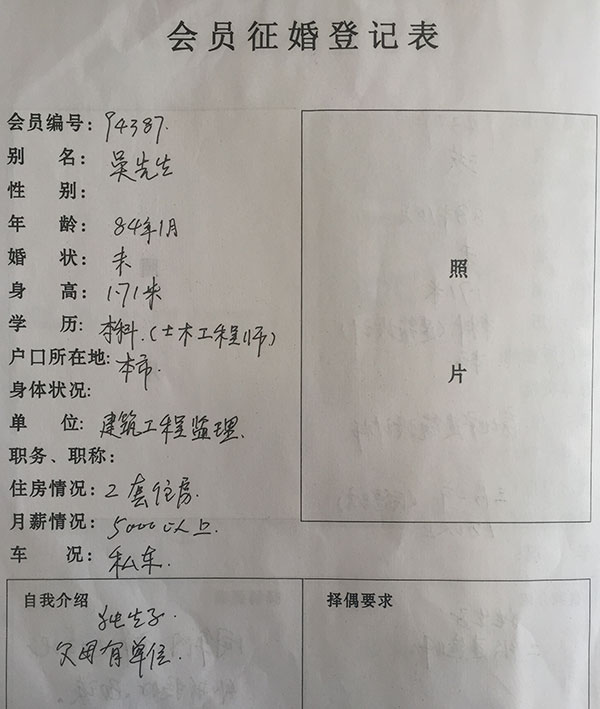 会员征婚登记表
会员编号: 94387.
别 名: 吴先生
性 别:
年 龄: 84年1月
婚 状: 未
身 高: 1.71米
学 历: 本科.(土木工程师)
户口所在地: 本市.
身体状况:
单 位: 建筑工程监理.
职务、职称:
住房情况: 2套住房.
月薪情况: 5000以上.
车 况: 私车.
照
片
自我介绍
独生子.
父母有单位.
择偶要求